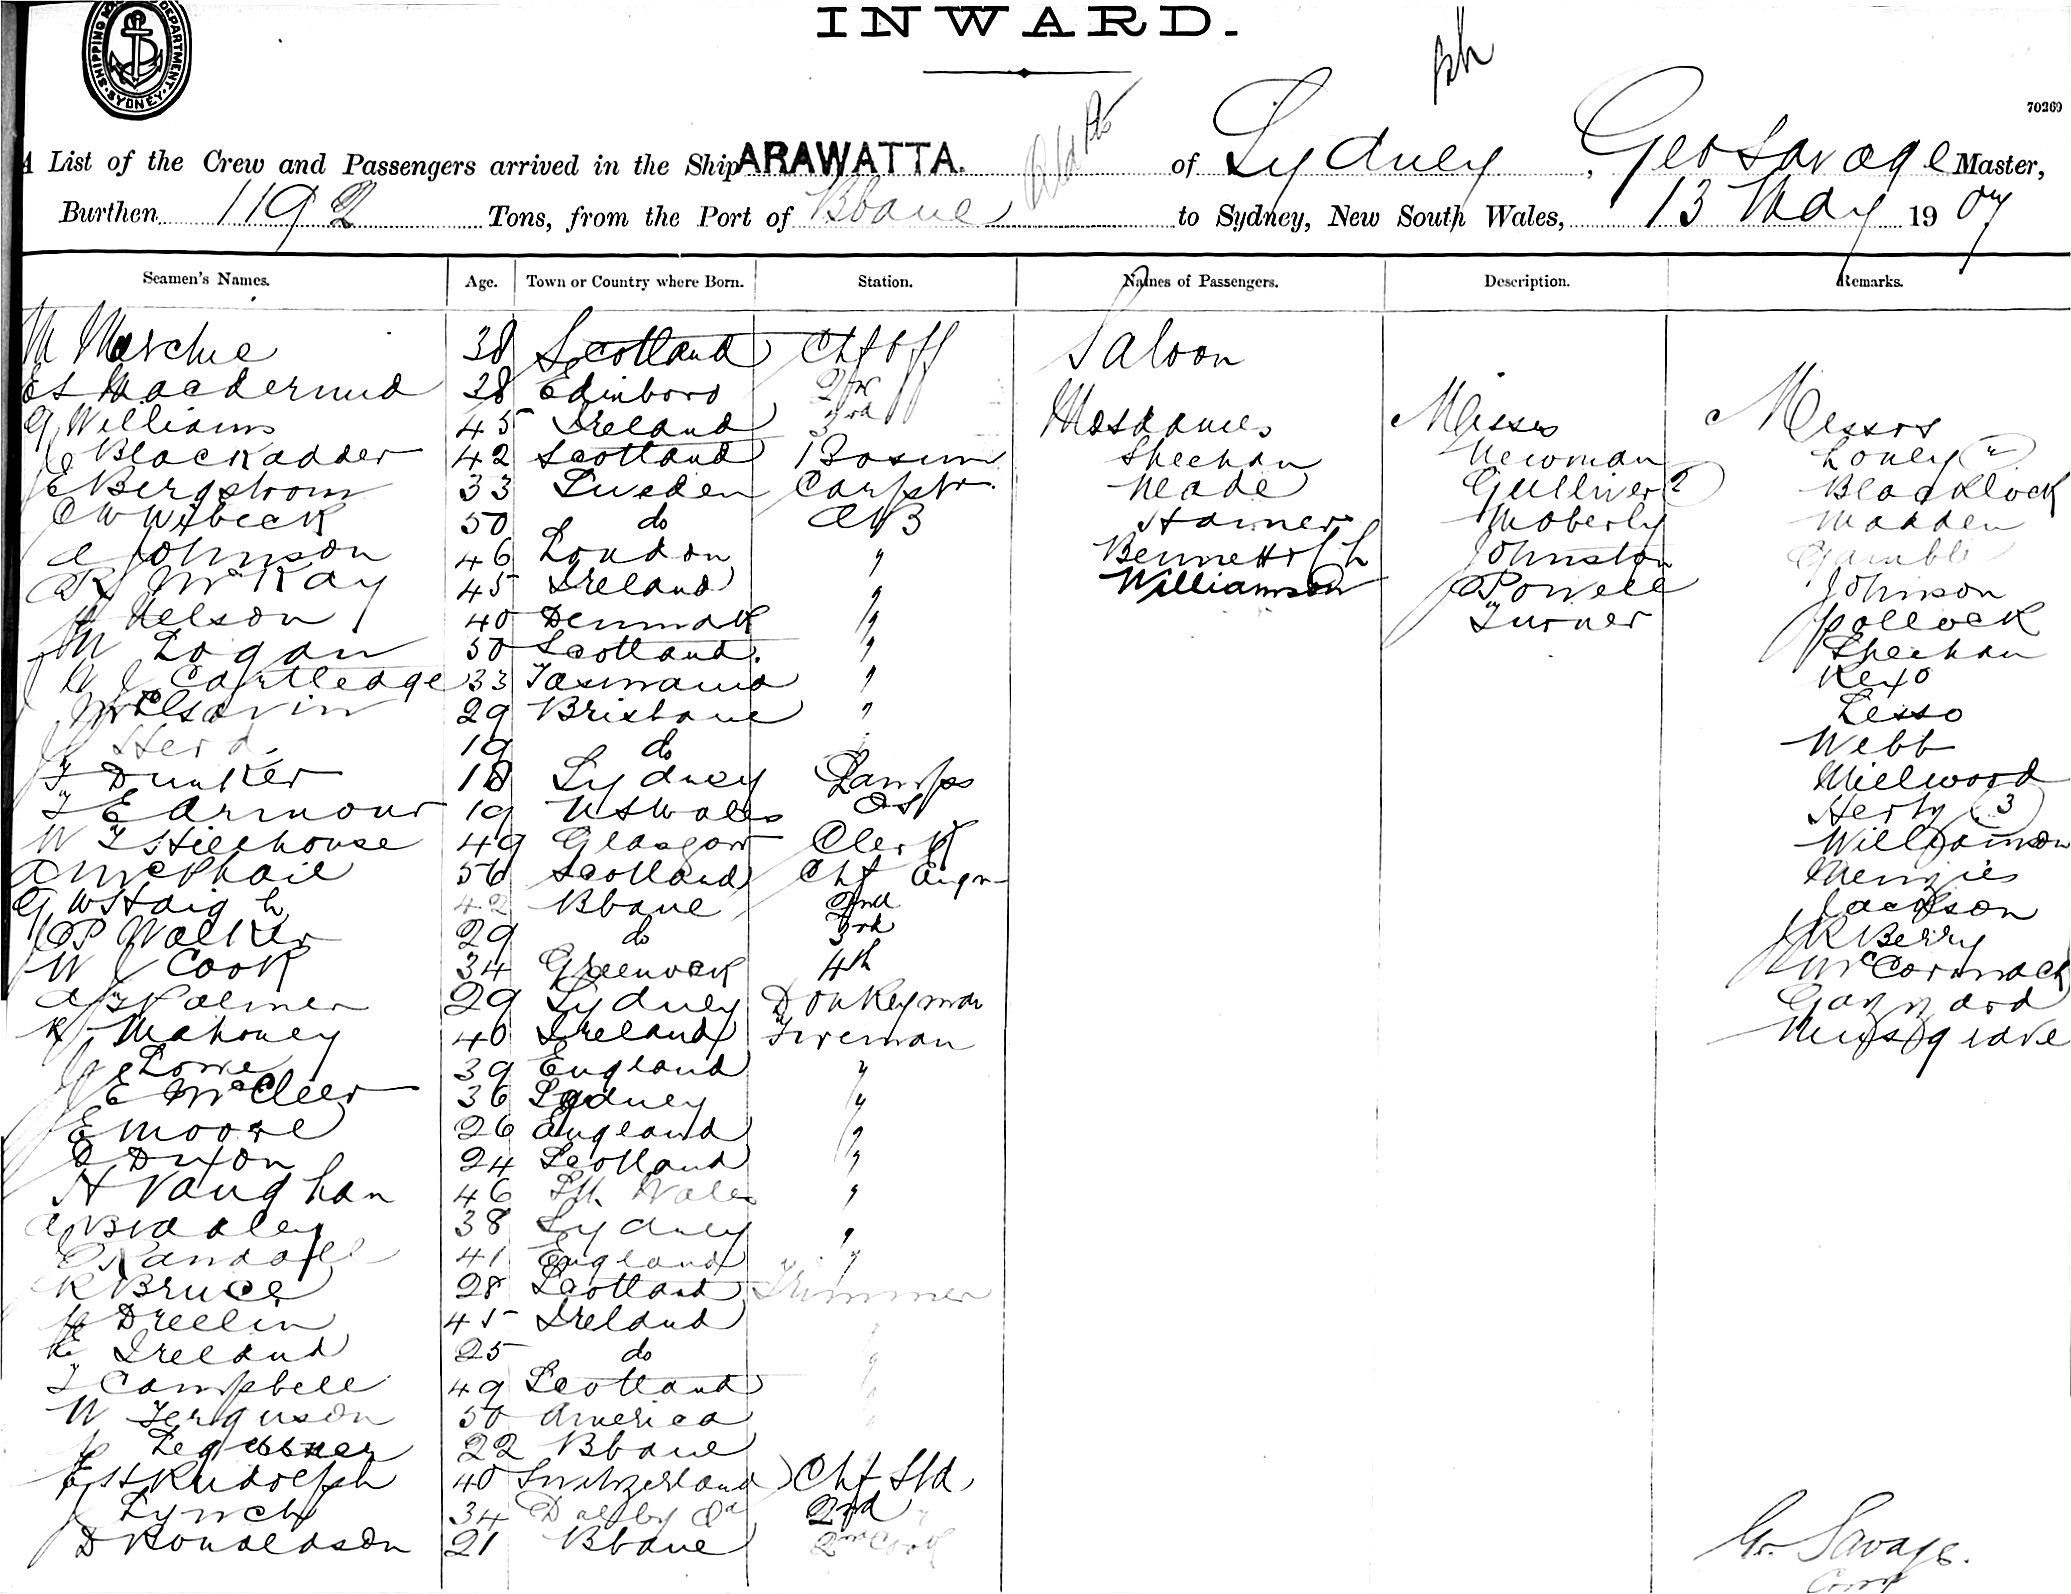 INWARD.
SHIPPING DEPARTMENT. SYDNEY.
70269
A List of the Crew and Passengers arrived in the Ship ARAWATTA. of Sydney, Geo Savage Master,
Burthen 1192 Tons, from the Port of Bbane to Sydney, New South Wales, 13 May 1907
Seamen's Names. Age. Town or Country where Born. Station. Names of Passengers. Description. Remarks.
38 Scotland Chf Off Saloon
Macdermid 38 Edinboro 2nd
G Williams 45 Ireland 3rd Mesdames Misses Messrs
J Blackadder 42 Scotland Bosun Sheehan Newman Loney
E Bergstrom 33 Sweden Carptr. Meade Gulliver 2 Blacklock
C W Wibeck 50 do AB Hainer Moberly Madden
A Johnson 46 London " Bennett & Ch Johnston Gamble
R J McKay 45 Ireland " Williamson Powell Johnson
Nelson 40 Denmark " Turner Pollock
M Logan 50 Scotland. " Sheehan
W J Cartledge 33 Tasmania " Rexo
29 Brisbane " Lesso
J Herd 19 do Webb
F Dunker 18 Sydney Lamps Millwood
T E Armour 19 N S Wales OS Herty (3)
W F Hillhouse 49 Glasgow Clerk Williamson
A McPhail 56 Scotland Chf Engr Menzies
G W Haigh 42 Bbane 2nd Jackson
P Walker 29 do 3rd J R Berry
W J Cook 34 Greenock 4th McCormack
A J Palmer 29 Sydney Donkeyman Gaynard
Mahoney 40 Ireland Fireman Musgrave
Lowe 39 England "
J E McCleer 36 Sydney "
E Moore 26 England "
C Dixon 24 Scotland "
H Vaughan 46 Sth Wales "
38 Sydney "
E Randall 41 England "
R Bruce 28 Scotland Trimmer
J Dreelin 45 Ireland
Ireland 25 do
T Campbell 49 Scotland
W Ferguson 50 America
22 Bbane
E H Rudolph 40 Switzerland Chf Std
J Lynch 34 Dalby Qd 2nd
D Ronaldson 21 Bbane 2nd Cook
G. Savage.